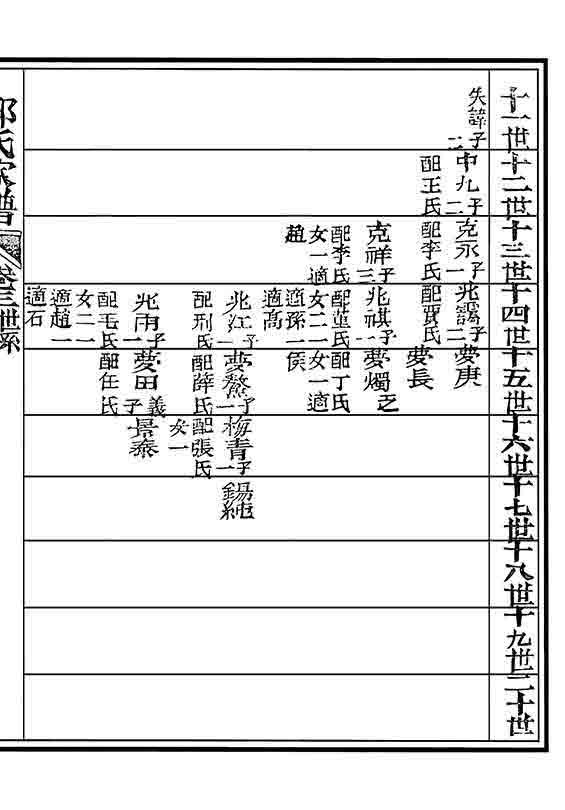 十一世十二世十三世十四世十五世十六世十七世十八世十九世二十世
失諱子二中九子二克永子一兆靄子二夢庚
配王氏配李氏配賈氏夢長
克祥子三兆祺子一夢燭乏
配李氏配董氏配丁氏
女一適女二一女一適
趙適孫一侯
適高
兆江子一夢鰲子一梅青子一錫純
配刑氏配薛氏配張氏
女一
兆雨子一夢田義子景泰
配毛氏配任氏
女二一
適趙一
適石
氏家譜 卷三世系